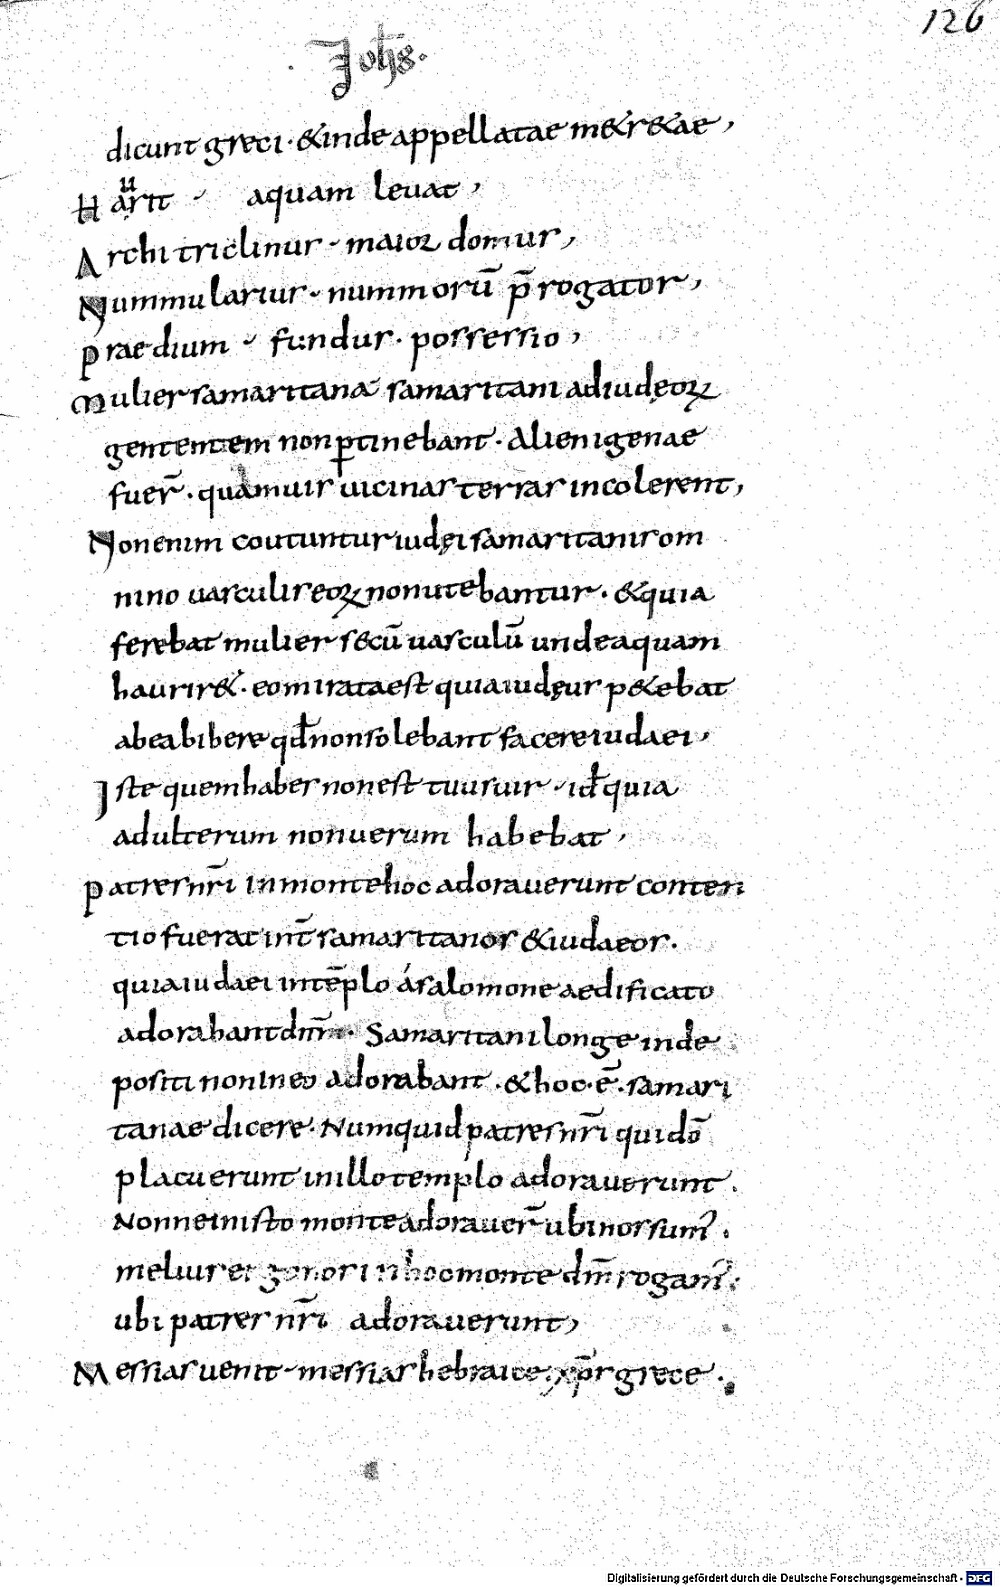 126
Joh̅s.
dicunt greci · & inde appellatae m&r&ae,
Haurit · aquam levat,
Architriclinus · maior domus,
Nummularius · nummorū p̄rogator,
praedium · fundus · possessio,
Mulier samaritana samaritani ad iudęoꝝ
gentem non ꝑtinebant · Alienigenae
fuer̄ · quamvis vicinas terras incolerent,
Non enim coutuntur iudęi samaritanis om
nino vasculis eoꝝ non utebantur · & quia
ferebat mulier secū vasculū unde aquam
haurir& · eo mirata est quia iudęus p&ebat
ab ea bibere qđ non solebant facere iudaei,
Iste quem habes non est tuus vir · id ̄ quia
adulterum non verum habebat,
Patres nr̄i in monte hoc adoraverunt conten
tio fuerat int̄ samaritanos & iudaeos.
quia iudaei in tēplo á salomone aedificato
adorabant dn̄m · Samaritani longe inde
positi non in eo adorabant · & hoc · ē · samari
tanae dicere · Numquid patres nr̄i qui dō
placuerunt in illo templo adoraverunt.
Nonne in isto monte adoraver̄ ubi nos sum'.
melius in hoc monte dm̄ rogam'.
ubi patres nr̄i adoraverunt,
Messias venit · messias hebraice · xp̄s grece.
Digitalisierung gefördert durch die Deutsche Forschungsgemeinschaft · DFG